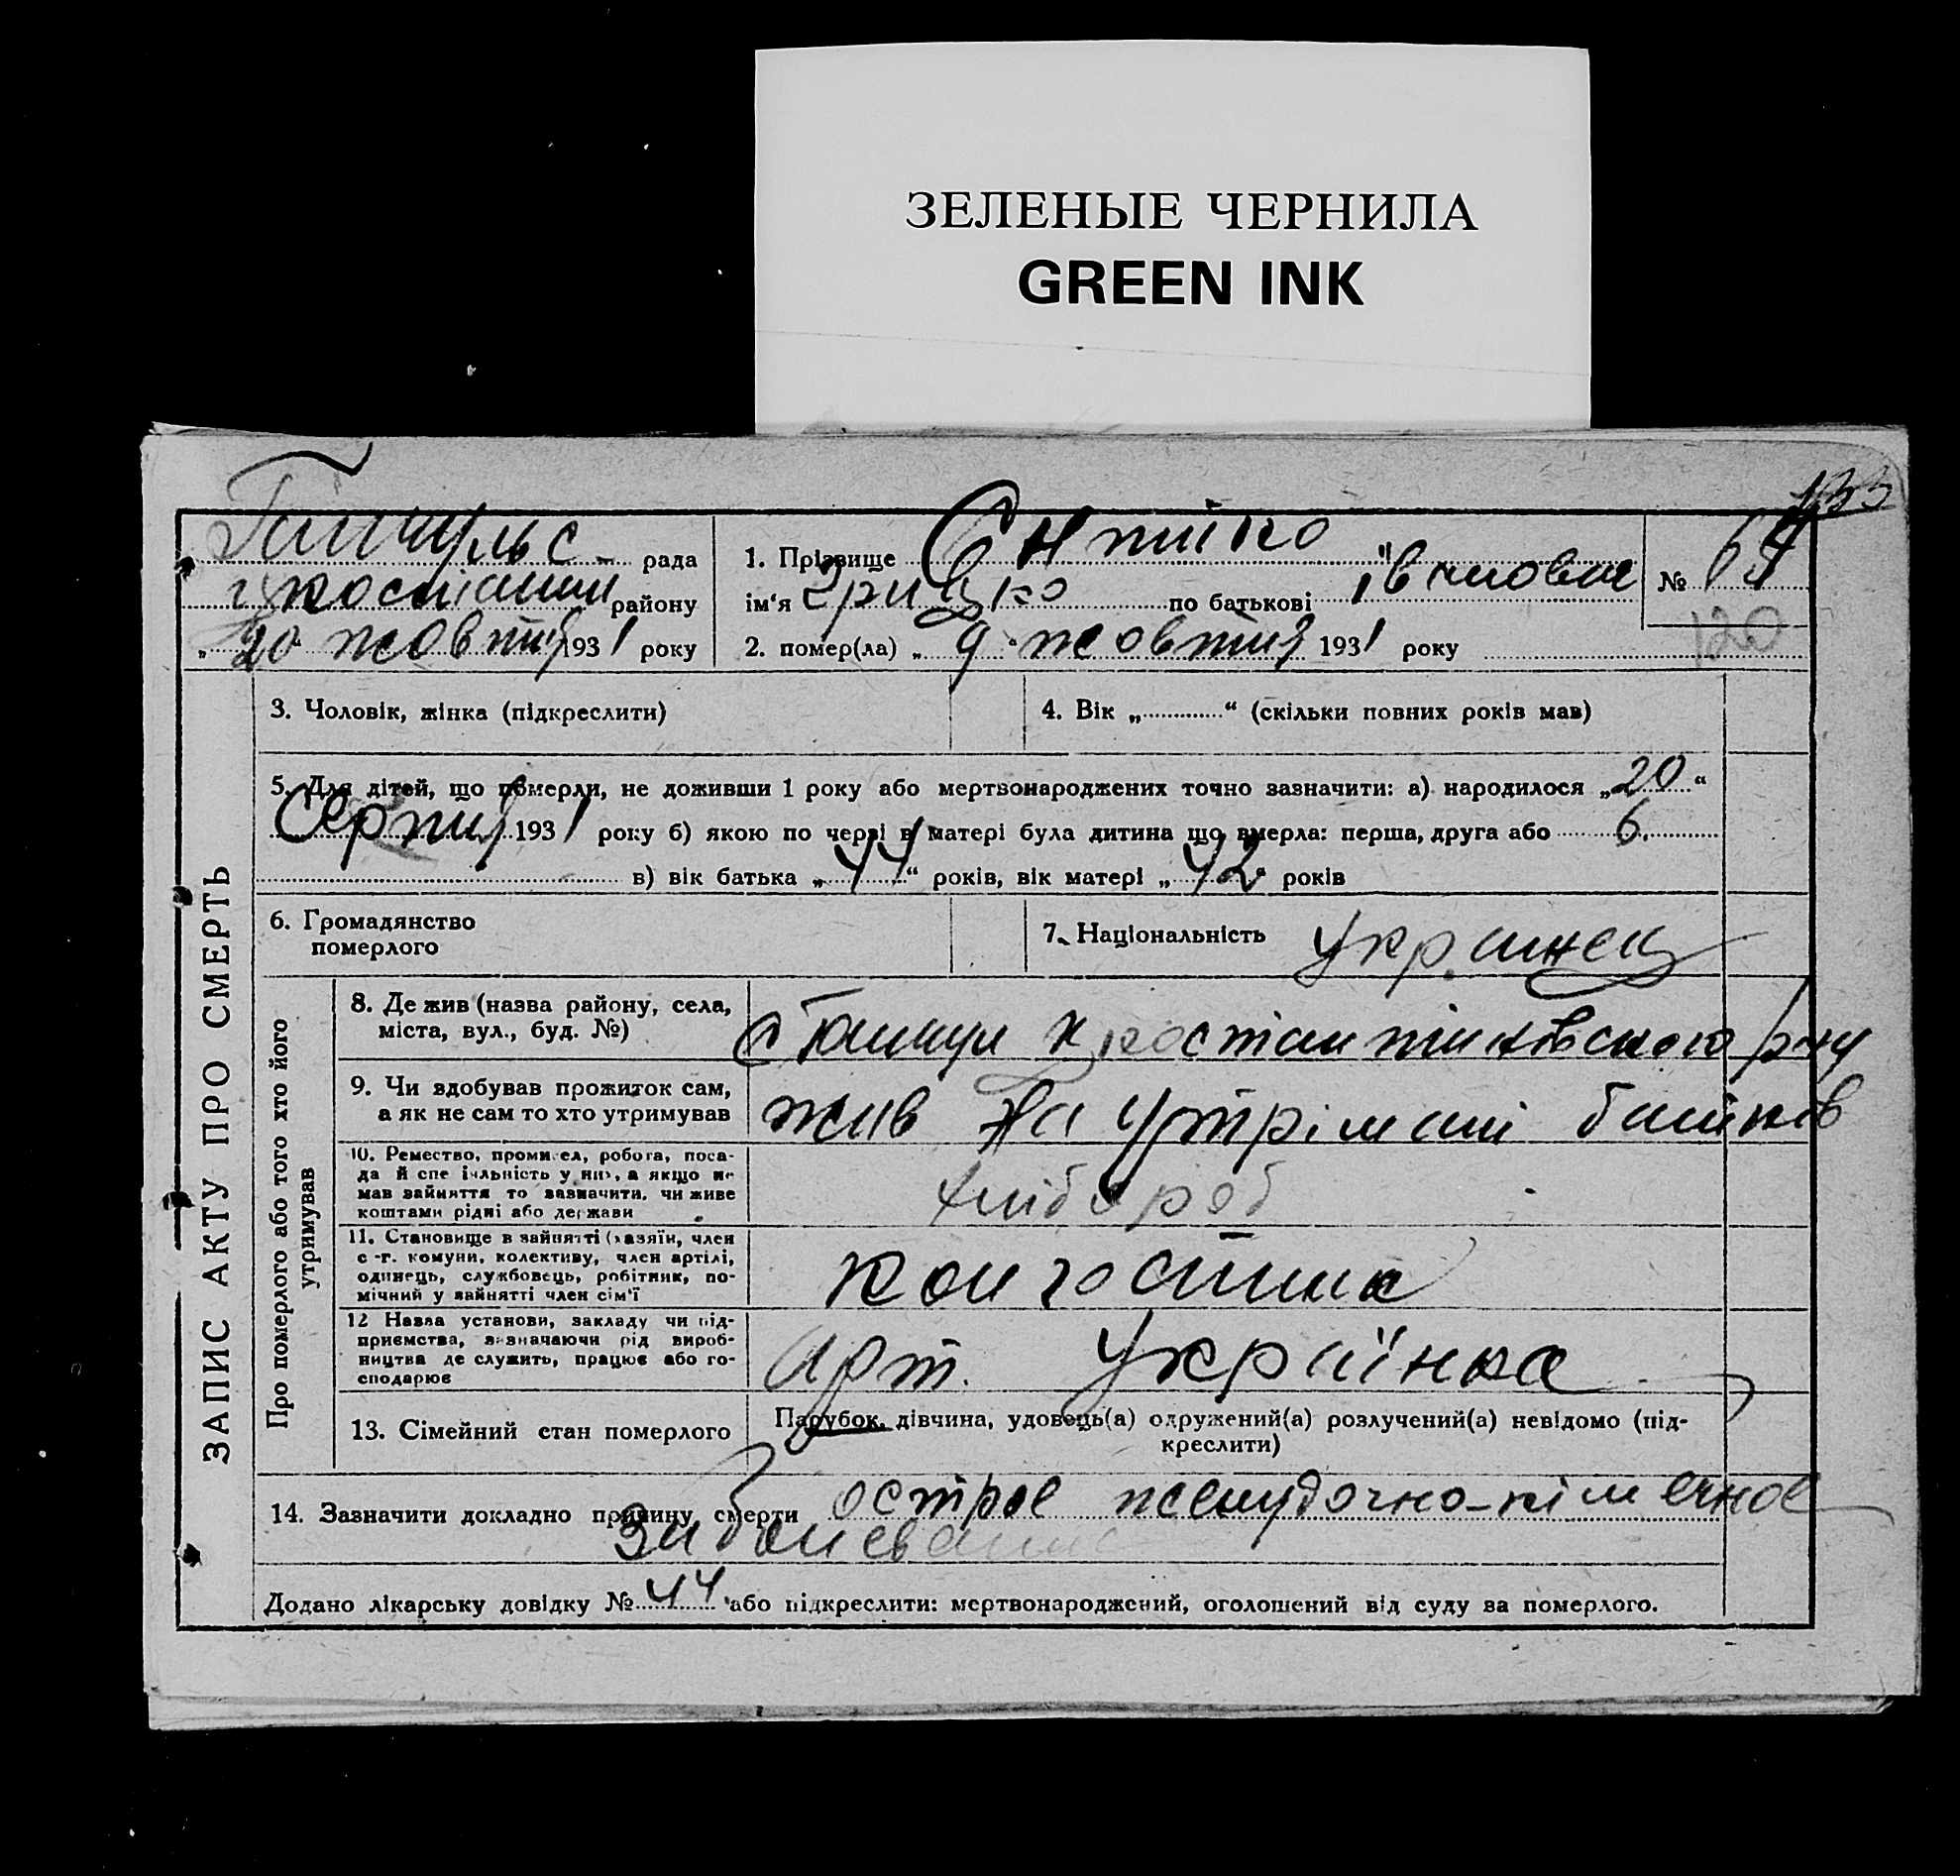 ЗЕЛЕНЫЕ ЧЕРНИЛА
GREEN INK
133
рада
району
„20 жовтня 1931 року
1. Прізвище
ім'я Грицко по батькові
№ 69
120
2. помер(ла) „9“ жовтня 1931 року
ЗАПИС АКТУ ПРО СМЕРТЬ
3. Чоловік, жінка (підкреслити)
4. Вік „.............“ (скільки повних років мав)
5. Для дітей, що померли, не доживши 1 року або мертвонароджених точно зазначити: а) народилося „20“
Серпня 1931 року б) якою по черзі в матері була дитина що вмерла: перша, друга або 6.
в) вік батька „44“ років, вік матері „42“ років
6. Громадянство
померлого
7. Національність Украинец
Про померлого або того хто його
утримував
8. Де жив (назва району, села,
міста, вул., буд. №)
9. Чи вдобував прожиток сам,
а як не сам то хто утримував
жив на утрімані батьків
10. Ремество, промисел, робота, поса-
да й спеціяльність у них, а якщо не
мав зайняття то зазначити, чи живе
коштами рідні або держави
хлібороб
11. Становище в зайнятті (хазяїн, член
с.-г. комуни, колективу, член артілі,
одинець, службовець, робітник, по-
мічний у зайнятті член сім'ї
колгоспник
12 Назва установи, закладу чи під-
приємства, зазначаючи рід вироб-
ництва де служить, працює або го-
сподарює
Арт. Українка
13. Сімейний стан померлого
Парубок, дівчина, удовець(а) одружений(а) розлучений(а) невідомо (під-
креслити)
14. Зазначити докладно причину смерти острое желудочно-кішечное
Заболевание
Додано лікарську довідку № 44 або підкреслити: мертвонароджений, оголошений від суду за померлого.